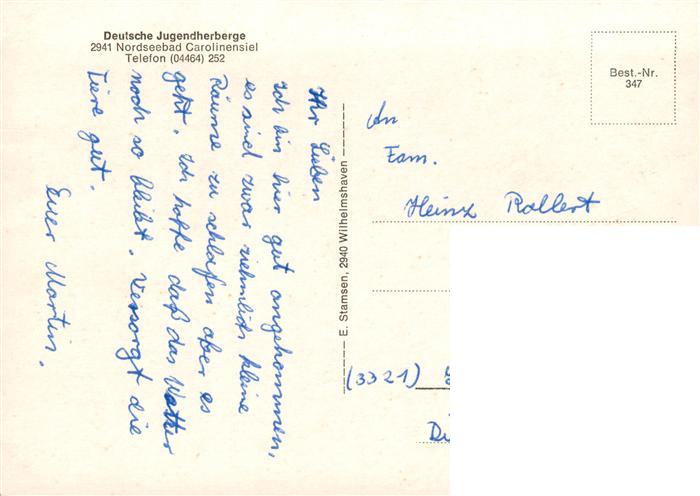 Deutsche Jugendherberge
2941 Nordseebad Carolinensiel
Telefon (04464) 252
Ihr Lieben
Ich bin hier gut angekommen,
es sind zwar ziehmlich kleine
Räume zu schlafen aber es
geht. Ich hoffe daß das Wetter
noch so bleibt. Versorgt die
Tiere gut.
Euer Martin.
E. Stamsen, 2940 Wilhelmshaven
Best.-Nr.
347
An
Fam.
Heinz Rollert
(3321)